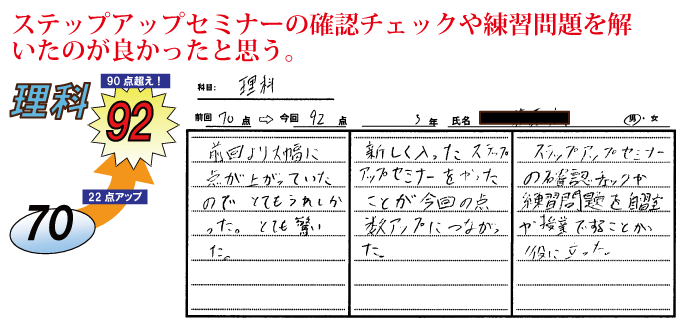 ステップアップセミナーの確認チェックや練習問題を解
いたのが良かったと思う。
理科
90点超え！
92
22点アップ
70
科目: 理科
前回 70 点 ⇨ 今回 92 点 3 年 氏名 男・女
前回より大幅に
点が上がっていた
ので とてもうれしか
った。とても驚い
た。
新しく入った ステップ
アップセミナーをやった
ことが今回の点
数アップにつながっ
た。
ステップアップセミナー
の確認チェックや
練習問題を自習室
や授業ですることが
役に立った。